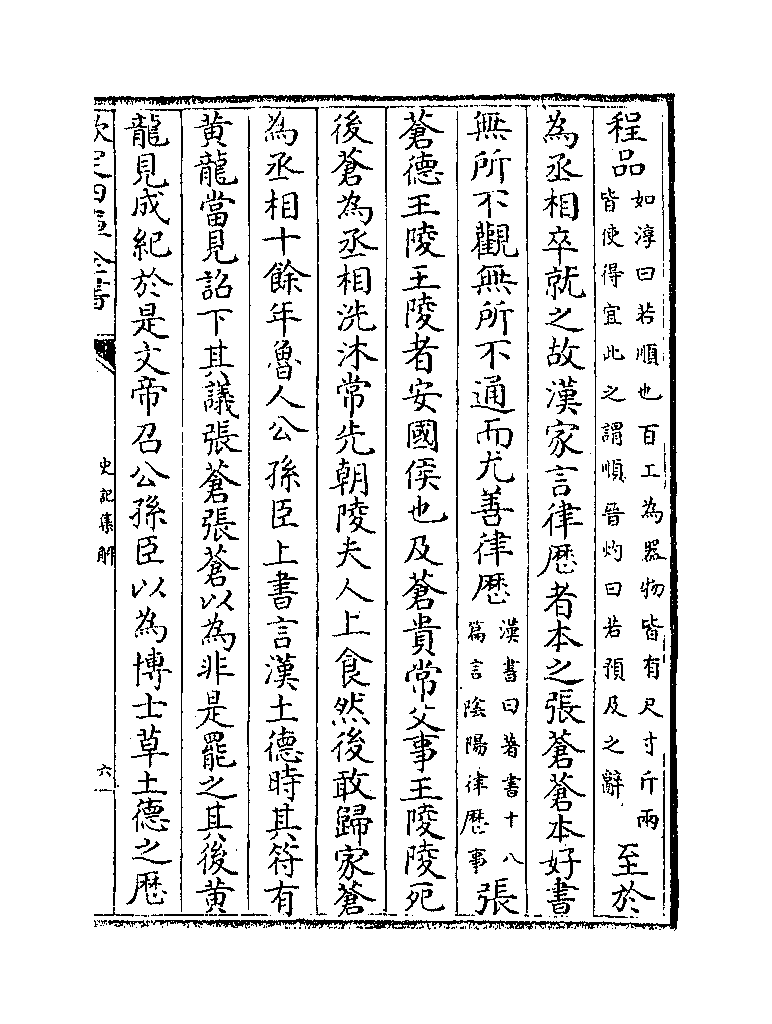 程品如淳曰若順也百工為器物皆有尺寸斤兩皆使得宜此之謂順晉灼曰若預及之辭至於
為丞相卒就之故漢家言律厯者本之張蒼蒼本好書
無所不觀無所不通而尤善律厯漢書曰著書十八篇言陰陽律厯事張
蒼德王陵王陵者安國侯也及蒼貴常父事王陵陵死
後蒼為丞相洗沐常先朝陵夫人上食然後敢歸家蒼
為丞相十餘年魯人公孫臣上書言漢土德時其符有
黃龍當見詔下其議張蒼張蒼以為非是罷之其後黃
龍見成紀於是文帝召公孫臣以為博士草土德之厯
欽定四庫全書
史記集解
六